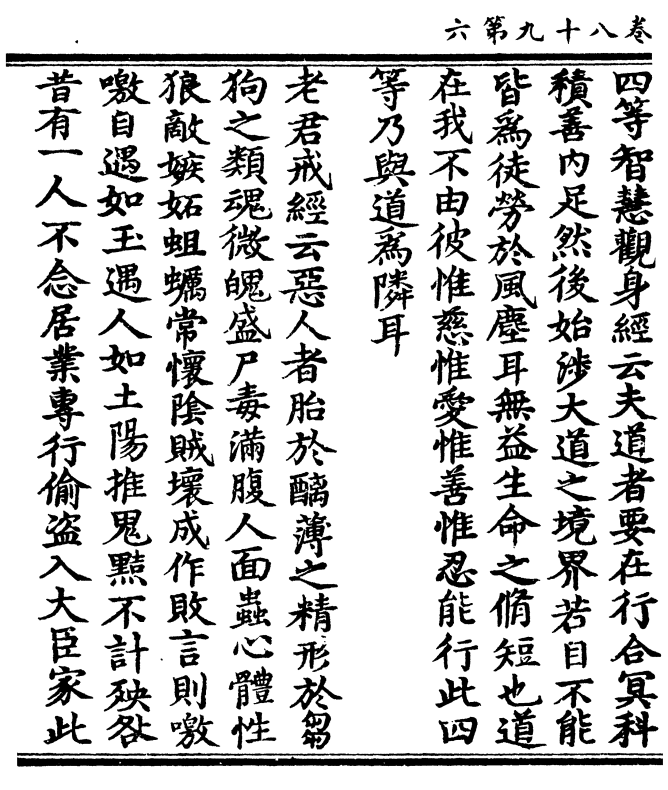 卷八十九第六
四等智慧觀身經云夫道者要在行合冥科
積善內足然後始涉大道之境界若自不能
皆爲徒勞於風塵耳無益生命之脩短也道
在我不由彼惟慈惟愛惟善惟忍能行此四
等乃與道爲隣耳
老君戒經云惡人者胎於醨薄之精形於芻
狗之類魂微魄盛尸毒滿腹人面蟲心體性
狼敵嫉妬蛆蠣常懷陰賊壞成作敗言則噭
噭自遇如玉遇人如土陽推鬼黠不計殃咎
昔有一人不念居業專行偷盜入大臣家此